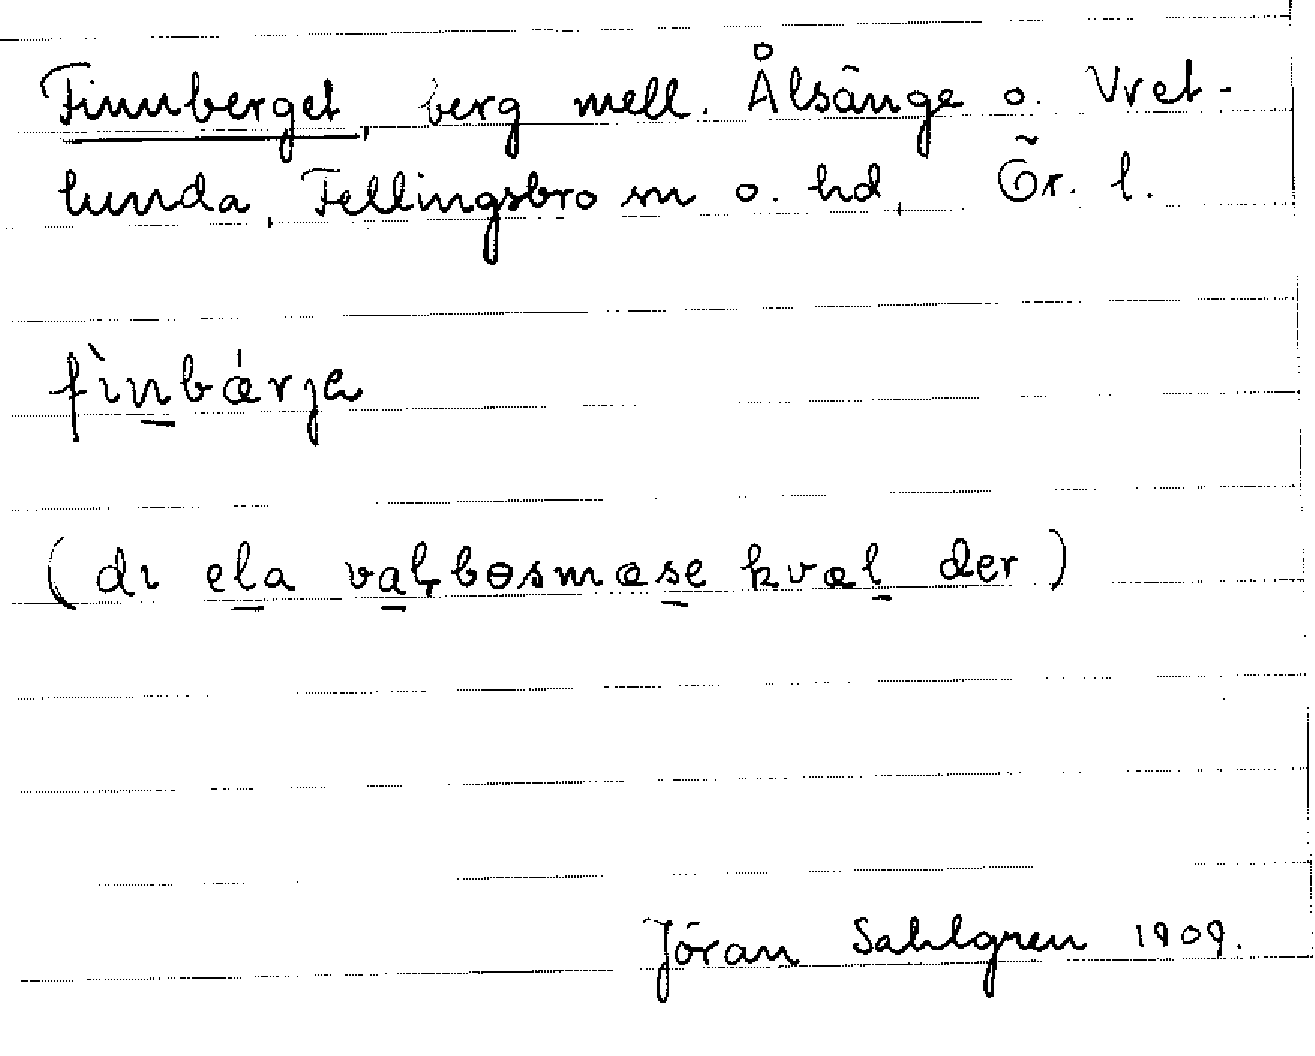 Finnberget, berg mell. Ålsänge o. Vret-
lunda, Fellingsbro sn o. hd, Ör. l.
fìnbǽrja
(dı ela valborsmæse kvæl der)
Jöran Sahlgren 1909.